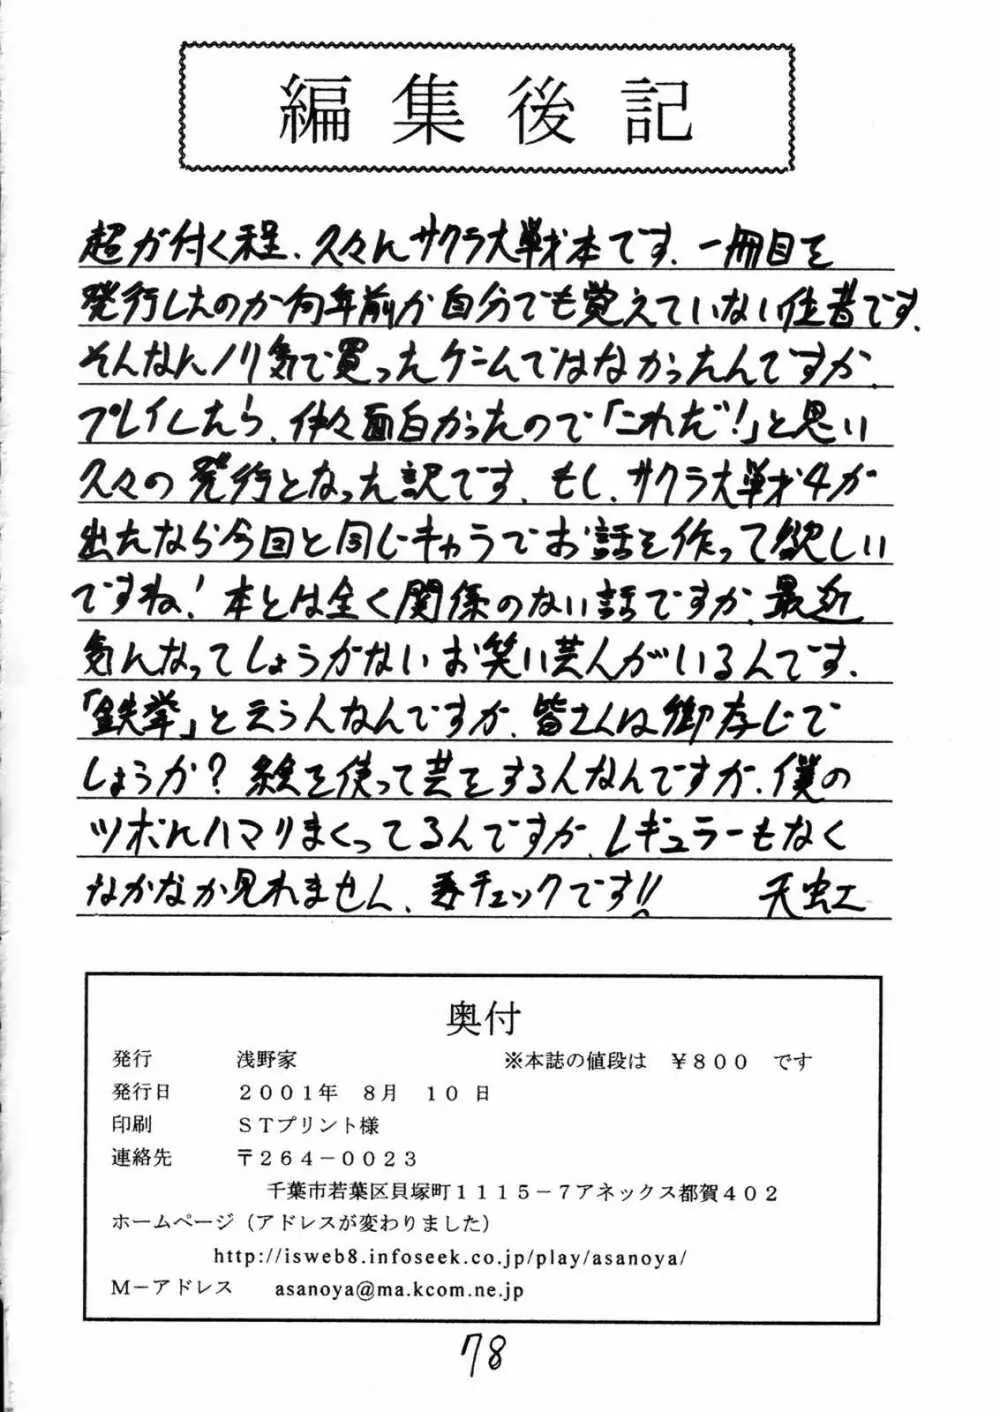 編集後記
超が付く程、久々にサクラ大戦本です、一冊目を
発行したのが何年前か自分でも覚えていない位昔です。
そんなにノリ気で買ったゲームではなかったんですが、
プレイしたら、仲々面白かったので「これだ!」と思い
久々の発行となった訳です。もし、サクラ大戦4が
出たなら今回と同じキャラでお話を作って欲しい
ですね!本とは全く関係のない話ですが、最近
気になってしょうがないお笑い芸人がいるんです、
「鉄拳」と云う人なんですが、皆さんは御存じで
しょうか?絵を使って芸をする人なんですが、僕の
ツボにハマりまくってるんですが、レギュラーもなく
なかなか見れません、要チェックです!! 天虫工
奥付
発行 浅野家 ※本誌の値段は ¥800 です
発行日 2001年 8月 10日
印刷 STプリント様
連絡先 〒264-0023
千葉市若葉区貝塚町1115-7アネックス都賀402
ホームページ(アドレスが変わりました)
http://isweb8.infoseek.co.jp/play/asanoya/
M-アドレス asanoya@ma.kcom.ne.jp
78